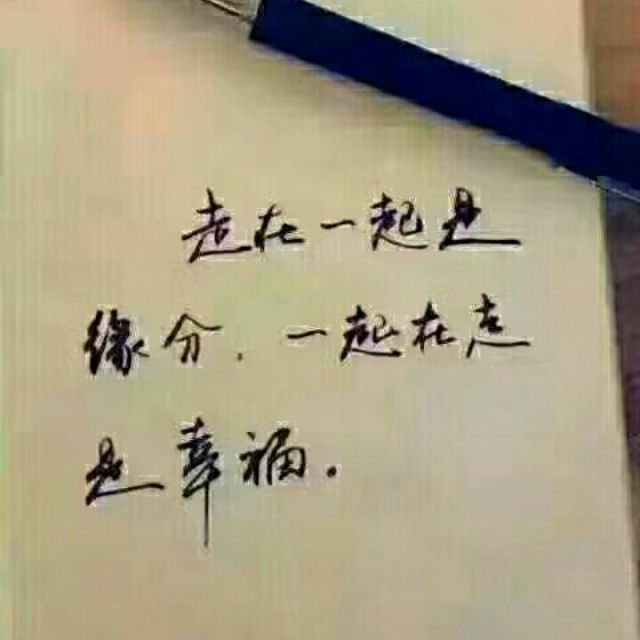 走在一起是
缘分.一起在走
是幸福.